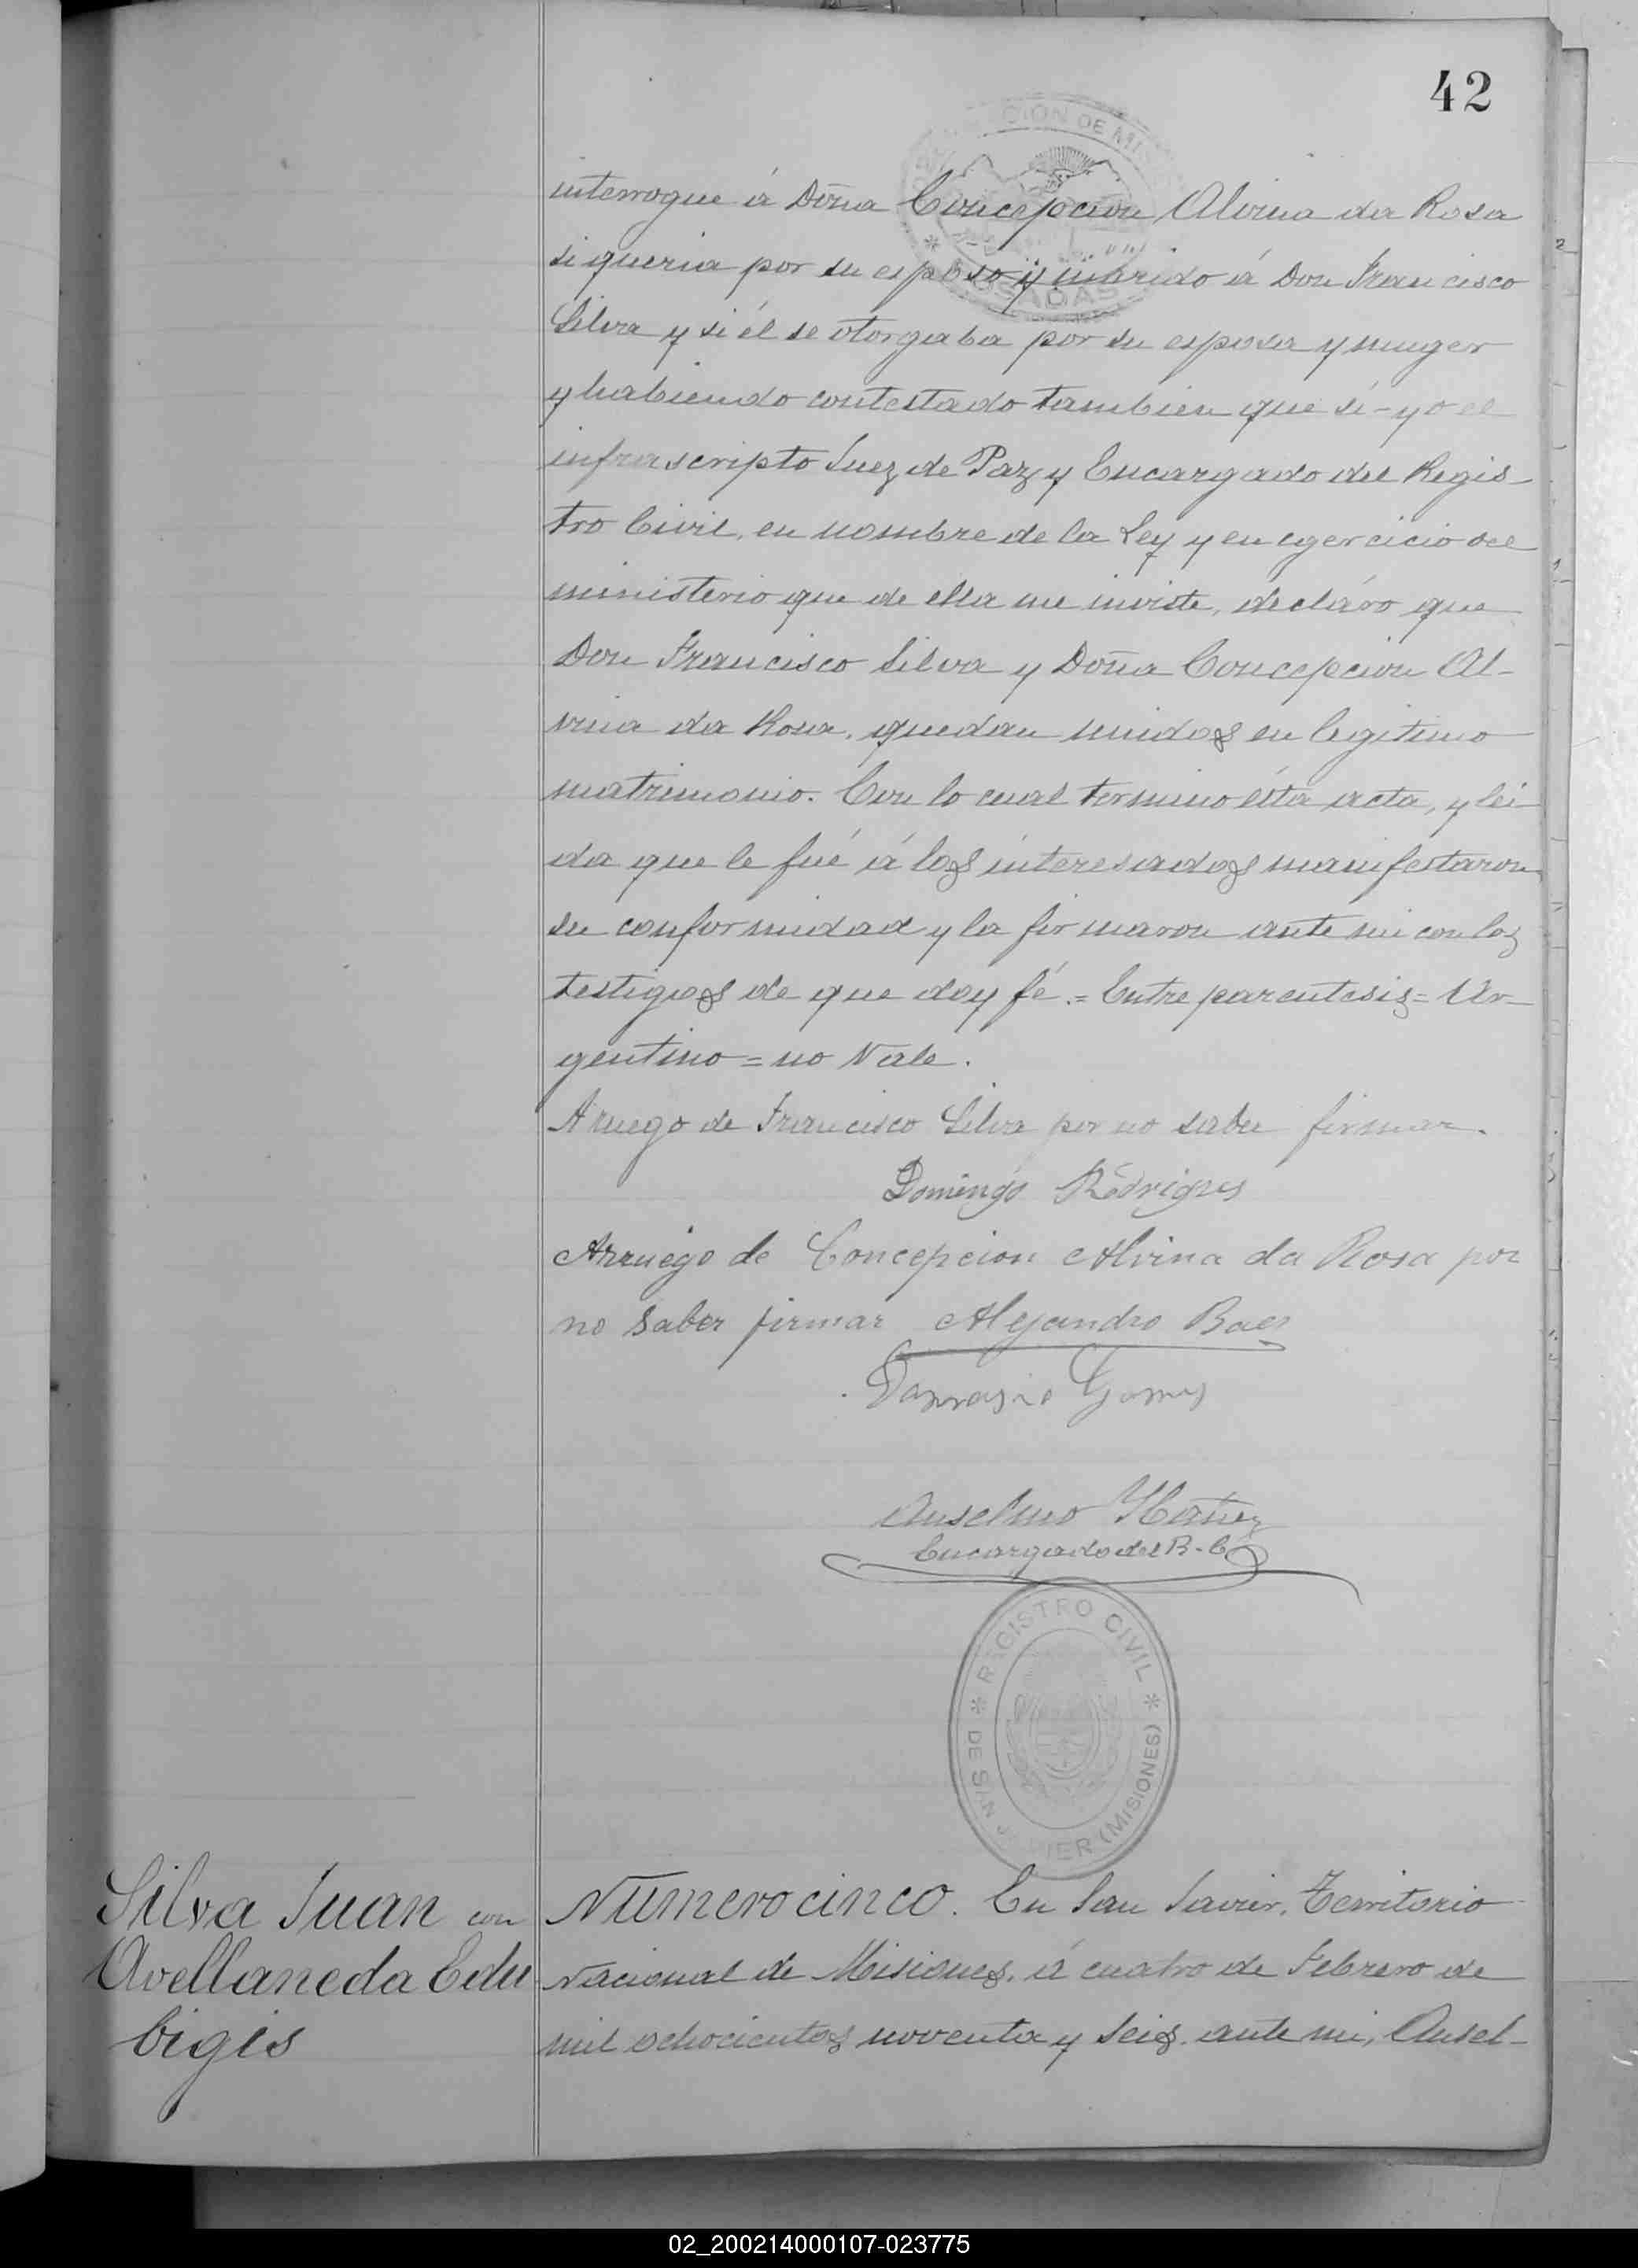 42
interrogue á Doña Concepcion Alvina da Rosa
si queria por su esposo y marido á Don Francisco
Silva y si él se otorgaba por su esposa y muger
y habiendo contestado tambien que sí - yo el
infrascripto Juez de Paz y Encargado del Regis-
tro Civil, en nombre de la Ley y en egercicio del
ministerio que de ella me inviste, decláro que
Don Francisco Silva y Doña Concepcion Al-
vina da Rosa, quedan unidos en legitimo
matrimonio. Con lo cual termino ésta acta, y lei-
da que le fué á los interesados manifestaron
su conformidad y la firmaron ante mi con los
testigos de que doy fé. = Entre parentesis = Ar-
gentino = no vale.
A ruego de Francisco Silva por no saber firmar.
Domingo Rodrigues
Arruego de Concepcion Alvina da Rosa por
no saber firmar Alejandro Baes
Damasio Gomes
Anselmo
Encargado del R. C.
REGISTRO CIVIL
DE S
IER (MISIONES)
Silva Juan con
Avellaneda Edu
bigis
Numero cinco. En San Javier, Territorio
Nacional de Misiones, á cuatro de Febrero de
mil ochocientos noventa y seis, ante mi, Ansel-
02_200214000107-023775